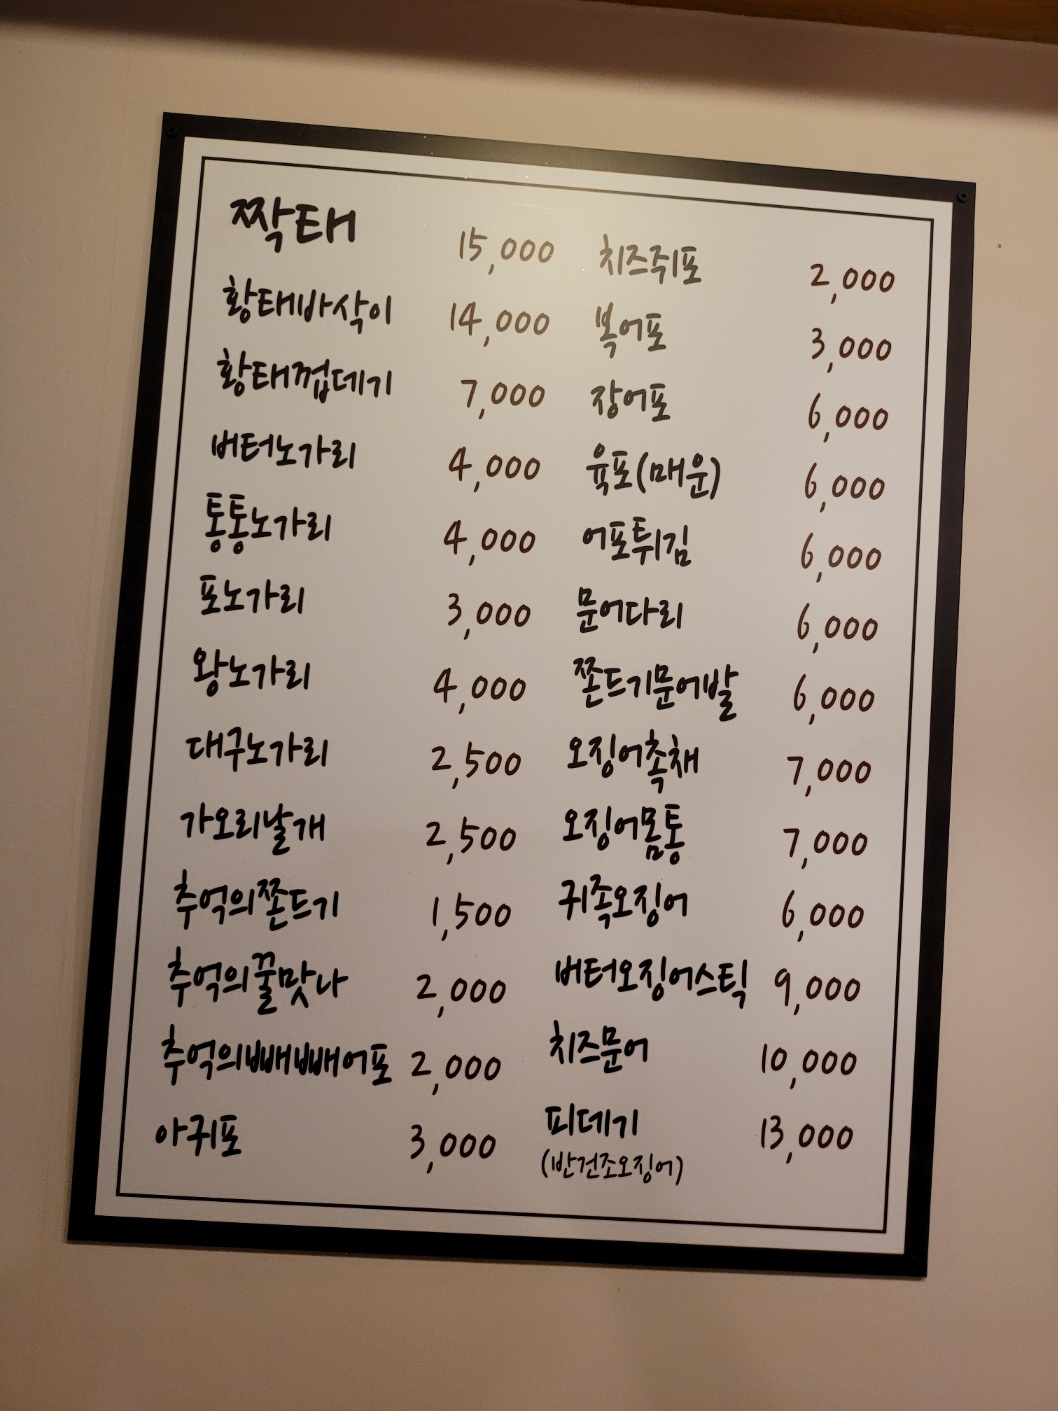 짝태 15,000
황태바삭이 14,000
황태껍데기 7,000
버터노가리 4,000
통통노가리 4,000
포노가리 3,000
왕노가리 4,000
대구노가리 2,500
가오리날개 2,500
추억의쫀드기 1,500
추억의꿀맛나 2,000
추억의빼빼어포 2,000
아귀포 3,000
치즈쥐포 2,000
복어포 3,000
장어포 6,000
육포(매운) 6,000
어포튀김 6,000
문어다리 6,000
쫀드기문어발 6,000
오징어촉채 7,000
오징어몸통 7,000
귀족오징어 6,000
버터오징어스틱 9,000
치즈문어 10,000
피데기 13,000
(반건조오징어)